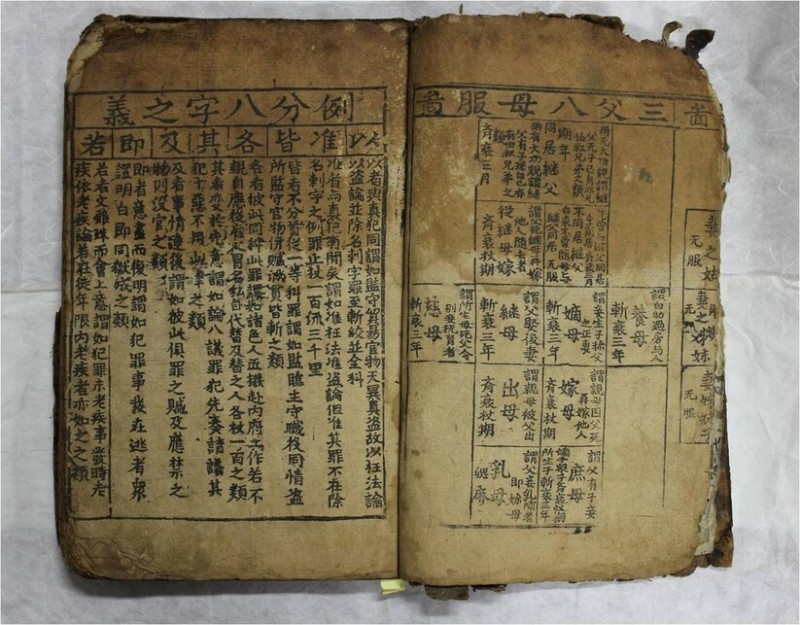 啚
三父八母服啚
妻之姑
无服
妻之姊妹
无服
无服
同居継父
期年
齊衰三月
不同居継父
謂父死継母再嫁
他人隨去者
從継母嫁
齊衰杖期
謂自幼過房与人
養母
斬衰三年
謂妾生子称父
之正妻
嫡母
斬衰三年
謂父娶後妻
継母
斬衰三年
謂所生母死父令
別妾撫育者
慈母
斬衰三年
謂父有子妾
庶母
嫡子衆子齊衰杖期
所生子斬衰三年
謂親母因父死
再嫁他人
嫁母
齊衰杖期
謂親母被父出
出母
齊衰杖期
謂父妾乳哺者
即妳母
乳母
緦麻
例分八字之義
以 准 皆 各 其 及 即 若
以者與真犯同謂如監守貿易官物无異真盗故以枉法論
以盗論並除名刺字罪至斬絞並全科
准者與真犯有間矣謂如准枉法准盗論但准其罪不在除
名刺字之例罪止杖一百流三千里
皆者不分首從一等科罪謂如監臨主守職役同情盗
所監守官物併贓滿貫皆斬之類
各者彼此同科此罪謂如諸色人匠撥赴内府工作若不
親自應役雇人冒名私自代替及替之人各杖一百之類
其者变於先意謂如論八議罪犯先奏請議其
犯十惡不用此律之類
及者事情連後謂如彼此俱罪之贓及應禁之
物則没官之類
即者意盡而復明謂如犯罪事發在逃者衆
證明白即同獄成之類
若者文雖殊而會上意謂如犯罪未老疾事發時老
疾依老疾論若在徒年限内老疾者亦如之之類